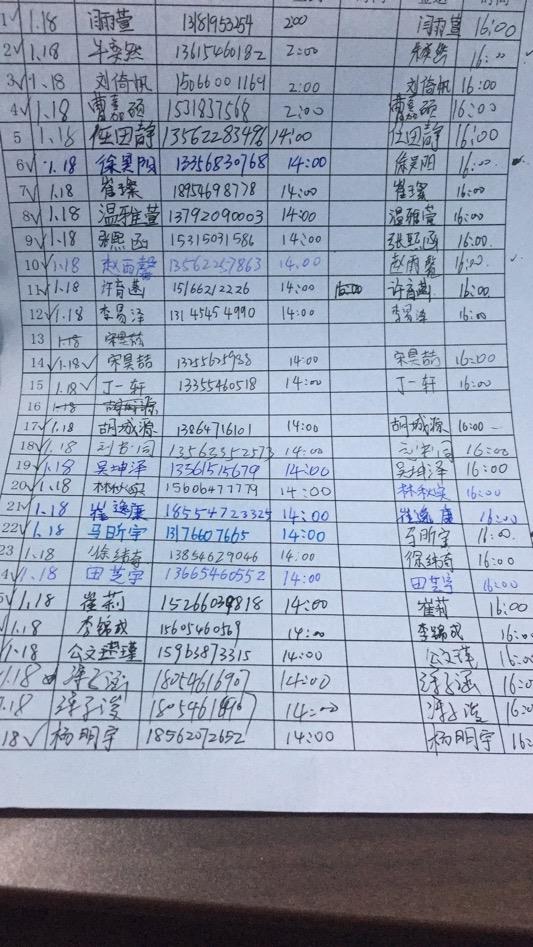 1 √ 1.18 闫雨萱 13181953254 200 闫雨萱 16:00
2 √ 1.18 牛奕然 13615460182 2:00 牛奕然 16:00
3 √ 1.18 刘倚帆 15066001169 2:00 刘倚帆 16:00
4 √ 1.18 曹嘉硕 1531837568 2:00 曹嘉硕 16:00
5 1.18 任田静 13562283496 14:00 任田静 16:00
6 √ 1.18 徐昊阳 13356830768 14:00 徐昊阳 16:00
7 √ 1.18 崔璨 18954698778 14:00 崔璨 16:00
8 √ 1.18 温雅萱 13792090003 14:00 温雅萱 16:00
9 √ 1.18 张熙函 15315031586 14:00 张熙函 16:00
10 √ 1.18 赵雨馨 13562257863 14:00 赵雨馨 16:00
11 √ 1.18 许育菡 15166212226 14:00 许育菡 16:00
12 √ 1.18 李易泽 13145454990 14:00 李易泽 16:00
13 1.18 宋昊喆
14 √ 1.18 √ 宋昊喆 14:00 宋昊喆 16:00
15 1.18 √ 丁一轩 13355460518 14:00 丁一轩 16:00
16 1.18
17 √ 1.18 胡城源 13864716101 14:00 胡城源 16:00
18 √ 1.18 13562352573 14:00 16:00
19 √ 1.18 吴坤泽 13561515679 14:00 吴坤泽 16:00
20 √ 1.18 林秋实 15606477779 14:00 林秋实 16:00
21 √ 1.18 崔逸康 18554723325 14:00 崔逸康 16:00
22 √ 1.18 马昕宇 13176607665 14:00 马昕宇 16:00
23 1.18 √ 徐绮奇 13854629046 14:00 徐绮奇 16:00
4 √ 1.18 田芝宇 13665460552 14:00 田芝宇 16:00
√ 1.18 崔莉 14:00 崔莉 16:00
√ 1.18 李锦成 15605460569 14:00 李锦成 16:0
1.18 15963873315 14:00 16:0
1.18 18054616907 14:00 16:0
1.18 14:00 16:0
18 √ 杨明宇 18562072652 14:00 杨明宇 16: